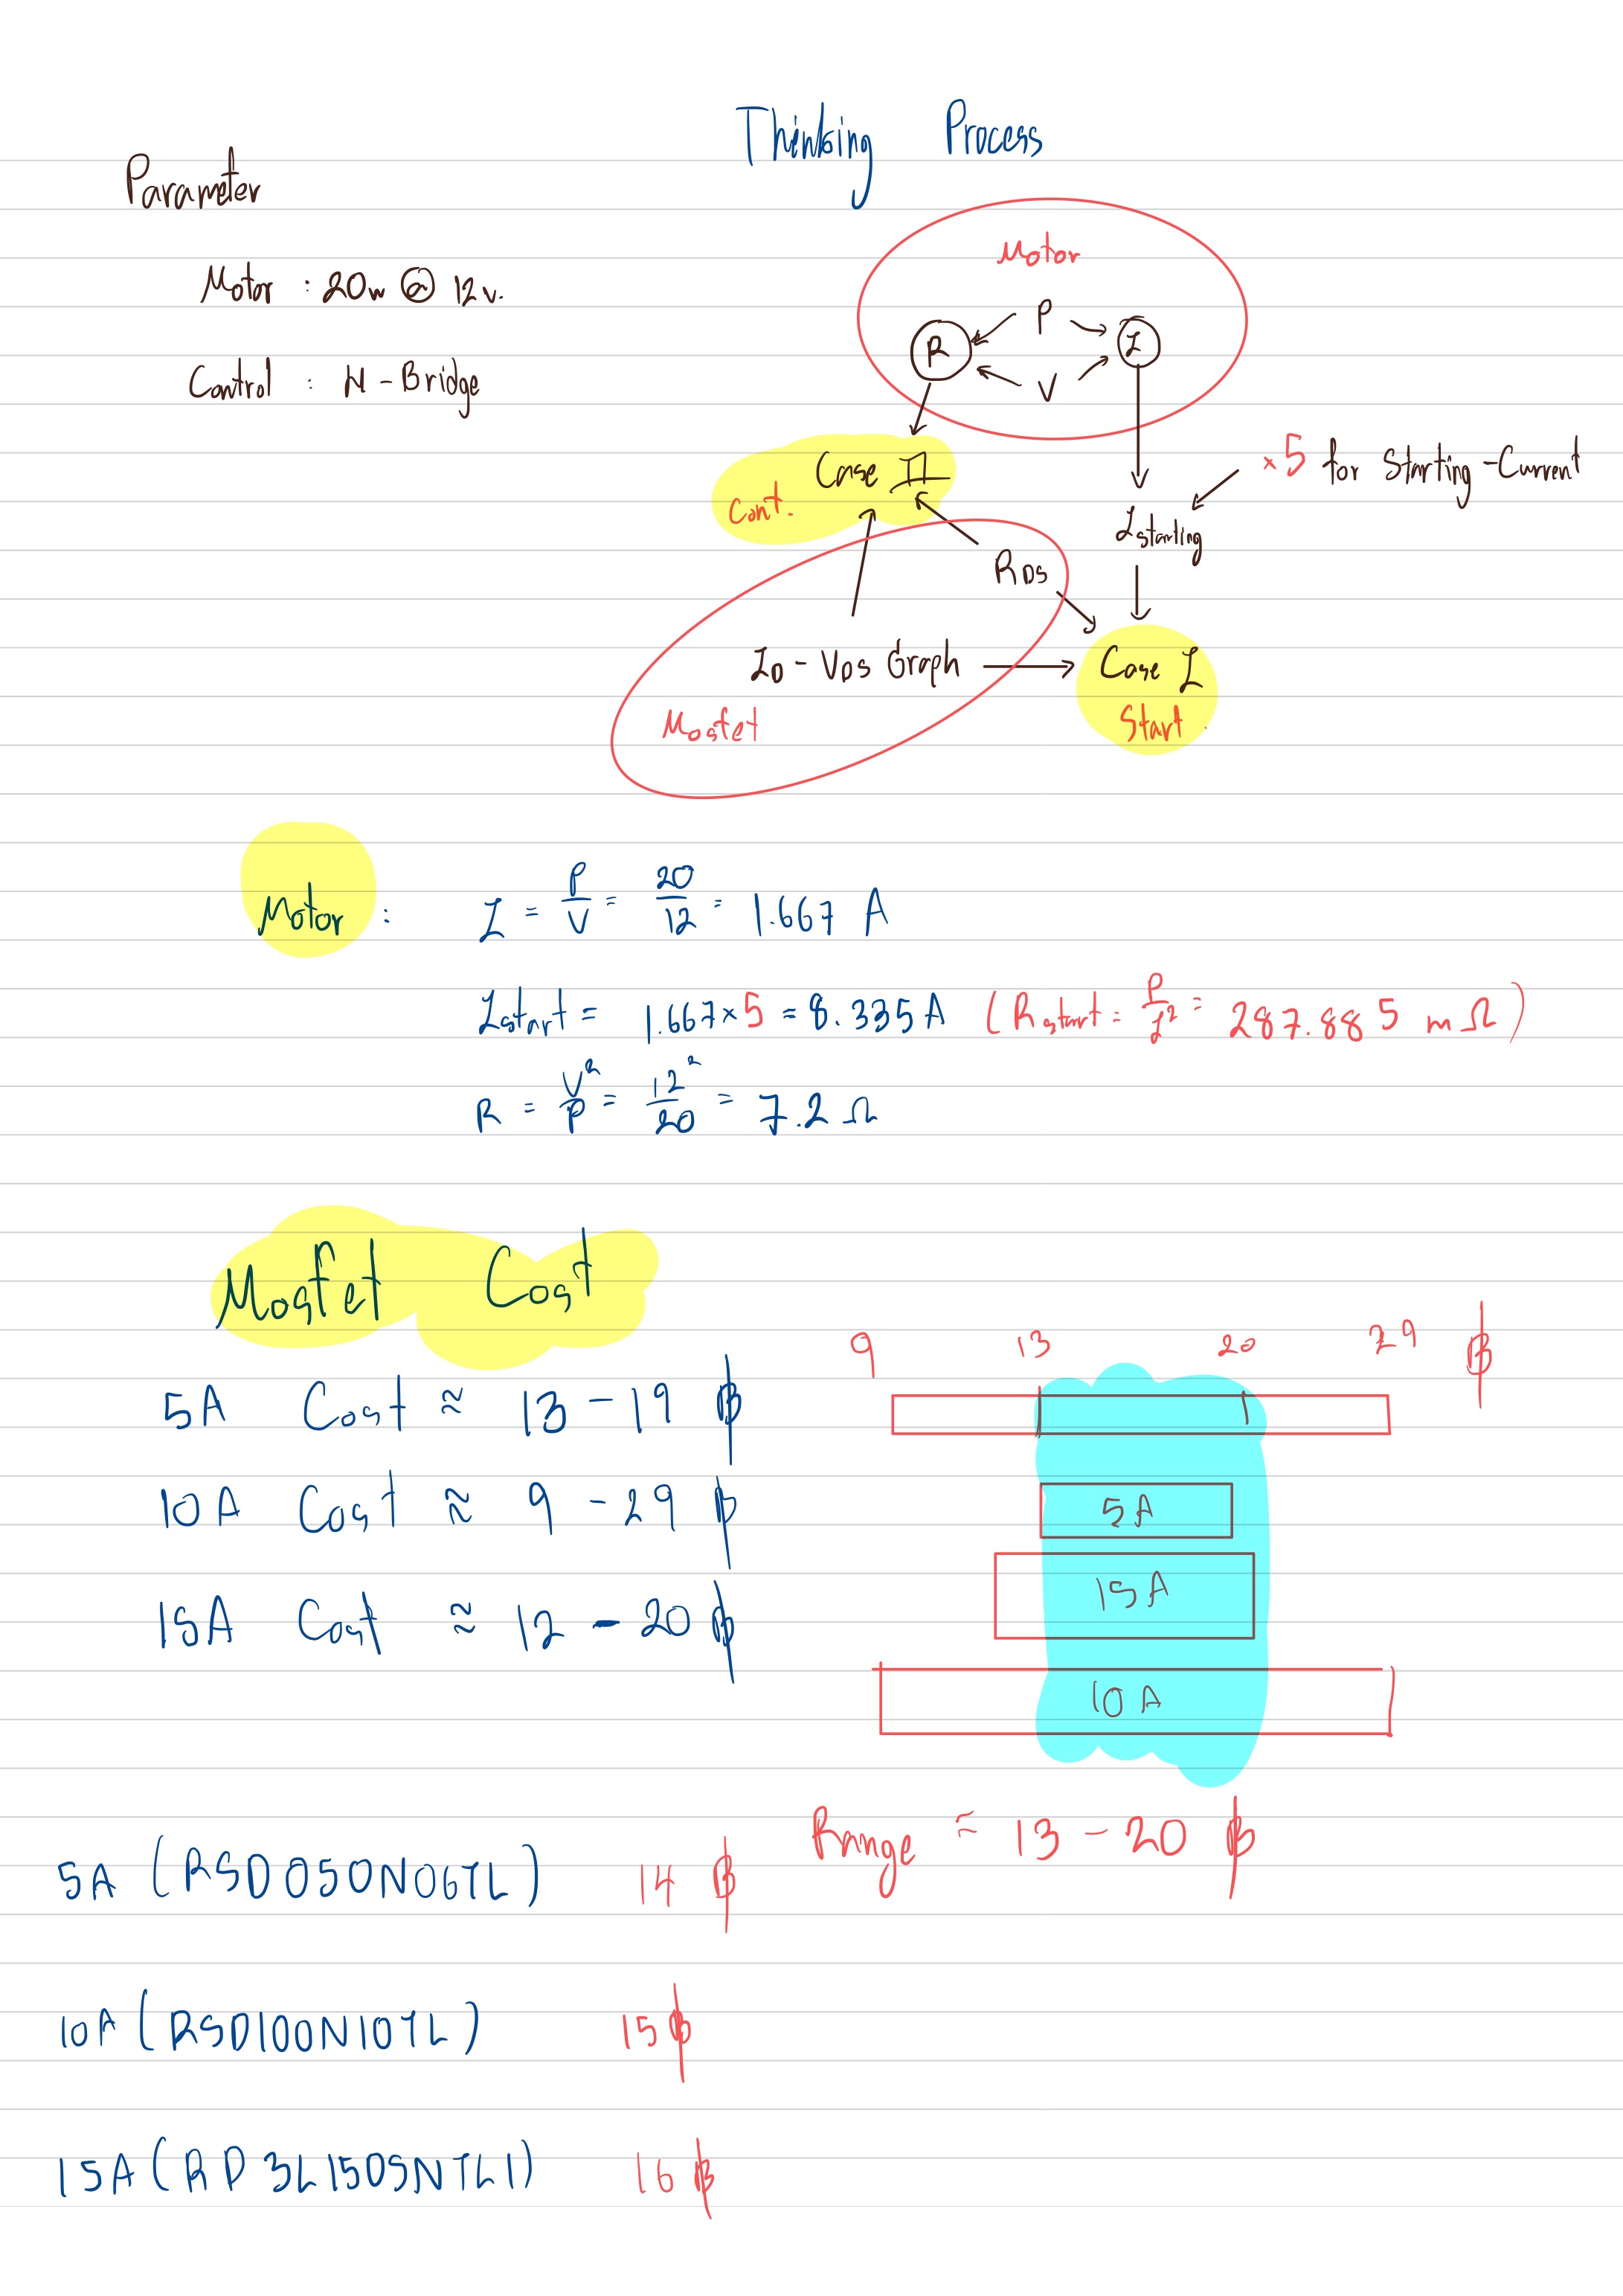 Thinking Process
Parameter
Motor : 20w @ 12v.
Control : H-Bridge
Motor
P
R
I
V
Case II
Cont.
×5 for Starting-Current
Istarting
RDS
ID - VDS Graph
Case I
Mosfet
Start.
Motor : I = P/V = 20/12 = 1.667 A
Istart = 1.667×5 = 8.335A (Rstart = P/I² = 287.885 mΩ)
R = V²/P = 12²/20 = 7.2 Ω
Mosfet Cost
9 13 20 29 ฿
5A Cost ≈ 13 - 19 ฿
10A Cost ≈ 9 - 29 ฿
5A
15A Cost ≈ 12 - 20 ฿
15A
10A
Range ≈ 13 - 20 ฿
5A (RSD050N06TL) 14 ฿
10A (RSD100N10TL) 15฿
15A (RD3L150SNTL1) 16฿